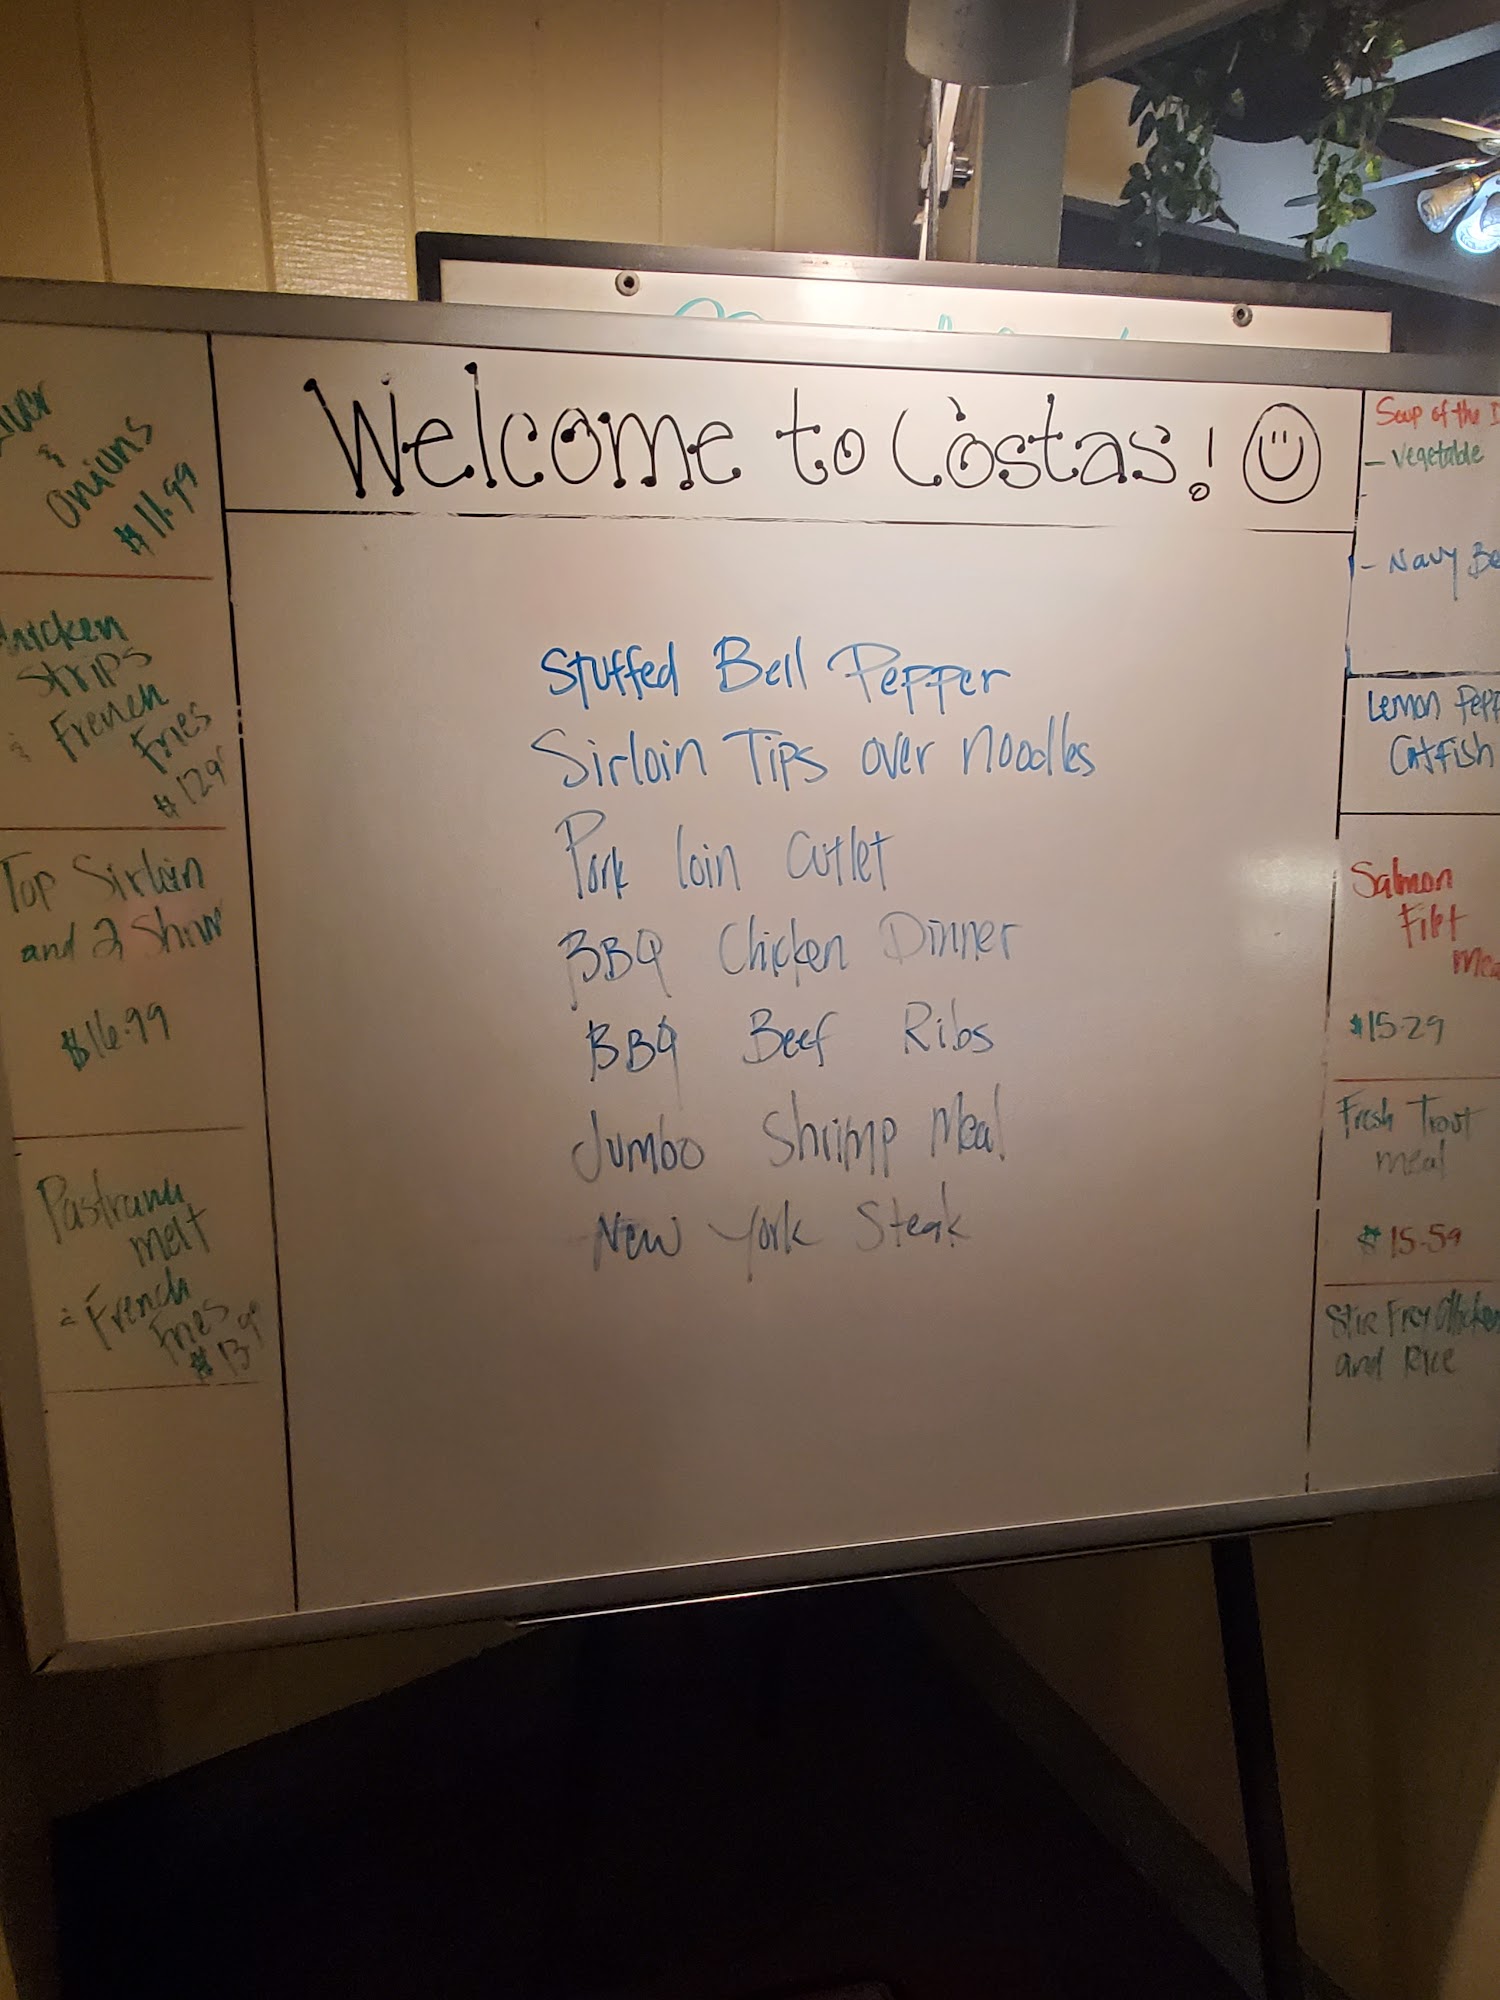 Welcome to Costas!
Onions
$11.99
Strips
French
Fries
Top Sirloin
and 2
$16.99
melt
French
Fries
Stuffed Bell Pepper
Sirloin Tips over noodles
Pork loin cutlet
BBQ Chicken Dinner
BBQ Beef Ribs
Jumbo Shrimp Meal
New York Steak
Soup of the
- Vegetable
- Navy
Lemon
Catfish
Salmon
Filet
$15.29
Fresh Trout
meal
$15.59
Stir Fry
and Rice